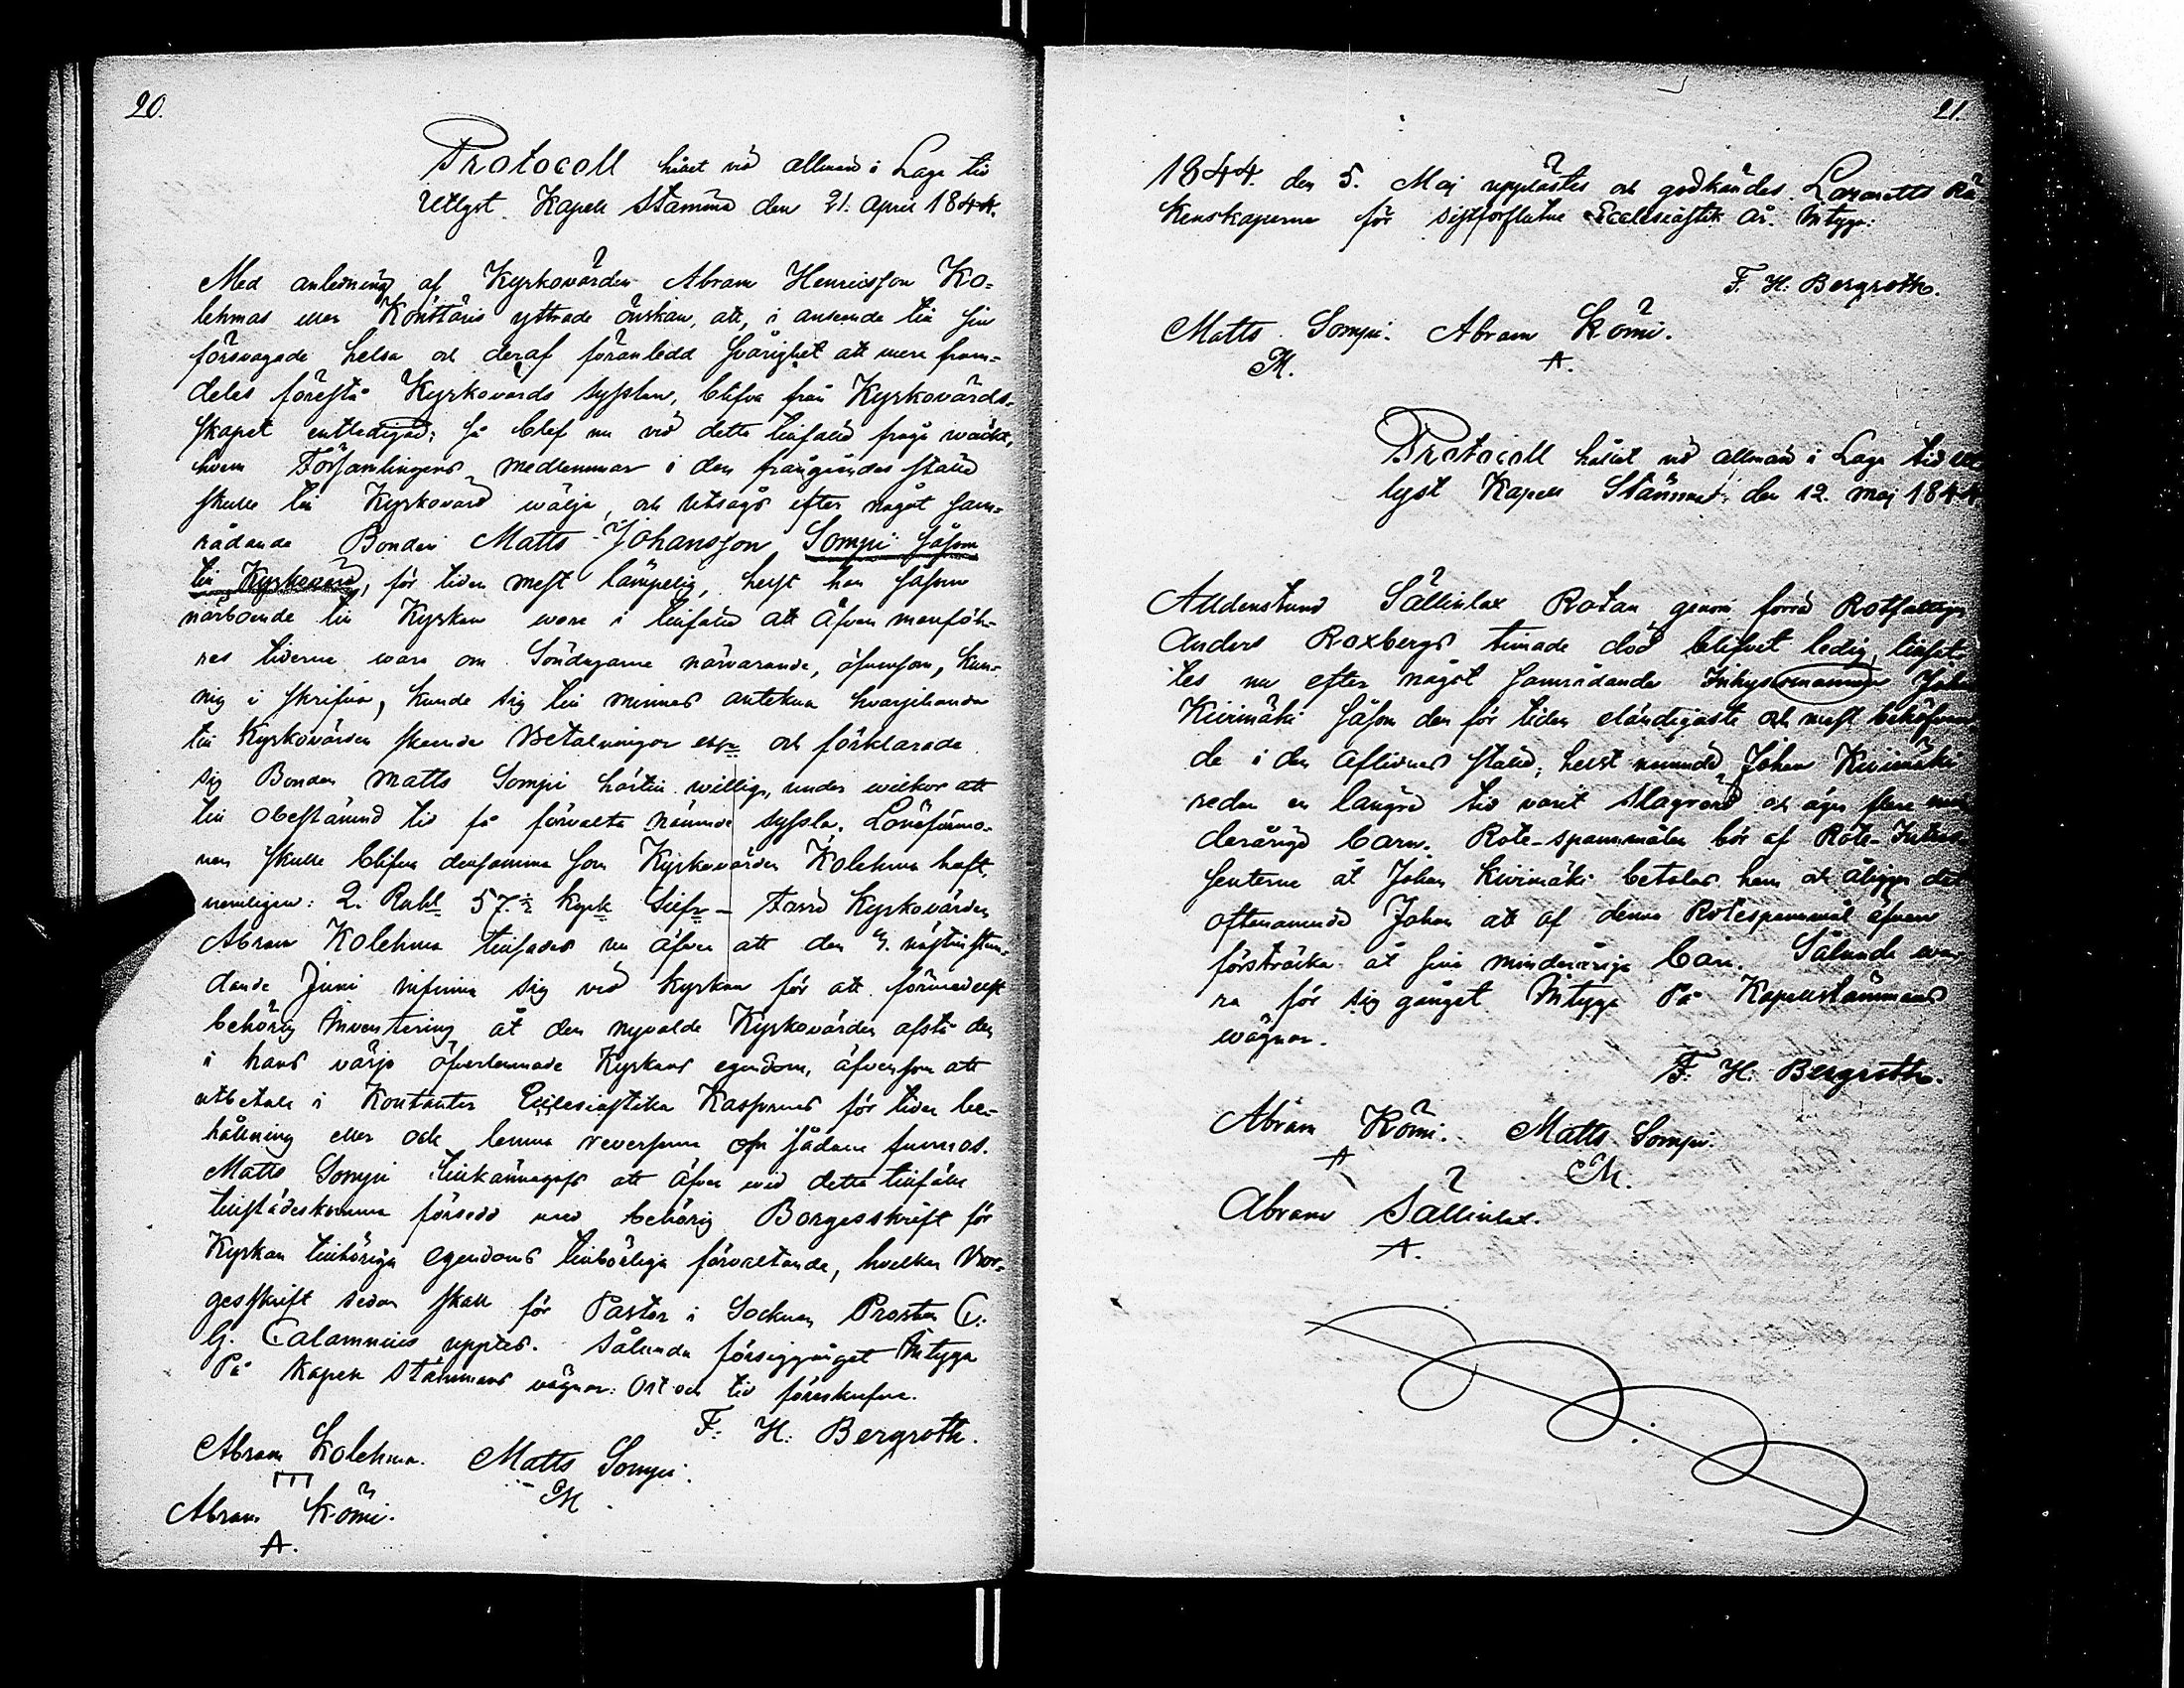 20.
Protocoll hållet vid allmän i Laga tid
Utlyst Kapell Stämma den 21. April 1844.
Med anledning af Kyrkovärden Abram Henricsson Ko-
lehmas eller Könttäris yttrade önskan, att, i anseende till sin
försvagade helsa och deraf föranledd svårighet att mera fram-
deles förestå Kyrkovärds sysslan, blifva från Kyrkovärds-
skapet entledigad; så blef nu vid detta tillfälle fråga väckt,
hvem Församlingens medlemmar i den frångåendes ställe
skulle till Kyrkovärd wälja, och utsågs efter något sam-
rådande Bonden Matts Johansson Sompi såsom
till Kyrkovärd, för tiden mest lämpelig, helst han såsom
närboende till Kyrkan vore i tillfälle att äfven menföh-
res tiderna vara om Söndagarne närvarande, äfvensom, kun-
nig i skrifva, kunde sig till minnes anteckna hvarjehanda
till Kyrkovärden skeende Betalningar och förklarade
sig Bonden Matts Sompi härtill willig, under willkor att
till obestämd tid få förvalta nämnde syssla. Löneförmo-
nen skulle blifva densamma som Kyrkovärden Kolehma haft,
nemligen: 2. Rubl 57 1/2 kopek Silfr - Förre Kyrkovärden
Abram Kolehma tillsades nu äfven att den 4. nästinstun-
dande Juni infinna sig ved Kyrkan för att förmedelst
behörig Inventering åt den nyvalde Kyrkovärden afstå den
i hans värjo öfverlemnade Kyrkans egendom, äfvensom att
utbetala i Kontanter Ecclesiastika Kassornes för tiden be-
hållning eller ock lemna reverserna om sådane funnos.
Matts Sompi tillkännagafs att äfven wid detta tillfälle
tillstädeskomma försedd med behörig Borgesskrift för
Kyrkan tillhöriga egendoms tillbörliga förvaltande, hvilken Bor-
gesskrift sedan skall för Pastor i Socknen Prosten C.
G. Calamnius uppter. Sålunda försiggånget Intyga
På Kapell Stämmans vägnar: Ort och tid föreskrefne.
F. H. Bergroth.
Abram Kolehma. Matts Sompi.
M.
Abram Kömi.
A.
21.
1844. den 5. Maj upplästes och godkändes Lazaretts Rä-
kenskaperne för sistförflutne Ecclesiastik år. Intyga:
F. H. Bergroth.
Matts Sompi. Abram Kömi.
M. A.
Protocoll hållet vid allmän i Laga tid ut-
lyst Kapell Stämma den 12. maj 1844.
Alldenstund Sällinlax Rotan genom förre Rotfattigen
Anders Roxbergs timade död blifvit ledig, tillsat-
tes nu efter något samrådande Inhysesmannen Johan
Kivimäki såsom den för tiden eländigaste och mest behöfvan-
de i den aflidnes ställe, helst nämnde Johan Kivimäki
redan en längre tid varit slagrörd och äger flere min-
derårige barn. Rote-spannmålen bör af Rote-Intres-
senterne åt Johan Kivimäki betalas hem och åligger det
oftanämnde Johan att af denna Rotespannmål äfven
försträcka åt sina minderåriga barn. Sålunda wa-
ra för sig gånget Intyga På Kapellstämmans
wägnar.
F. H. Bergroth.
Abram Kömi. Matts Sompi.
A M.
Abram Sällinlax.
A.